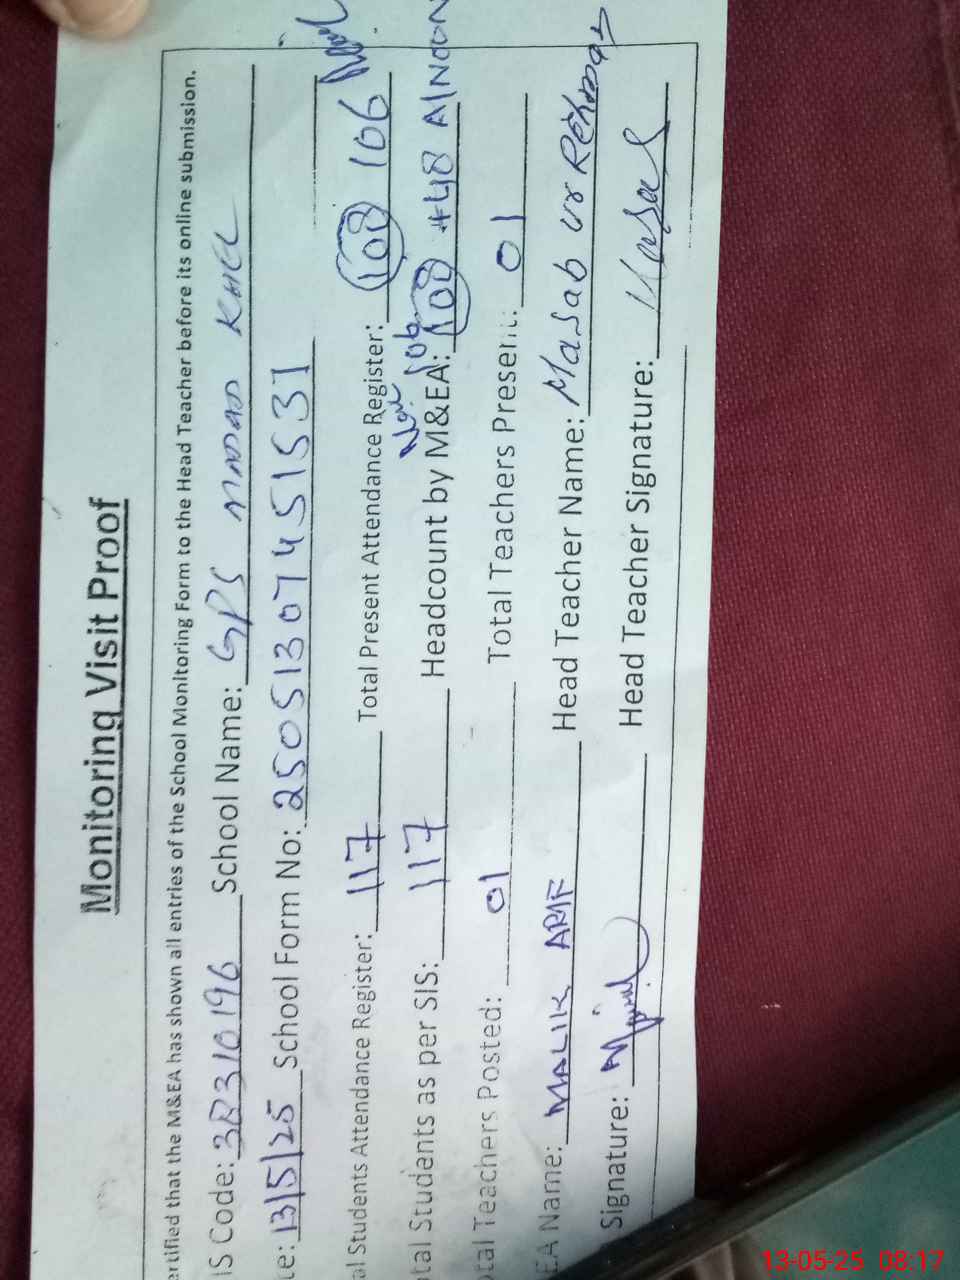 Monitoring Visit Proof
ertified that the M&EA has shown all entries of the School Monitoring Form to the Head Teacher before its online submission.
IS Code: 38310196 School Name: GPS
te: 13/5/25 School Form No: 25051307451531
al Students Attendance Register: 117 Total Present Attendance Register: 108 106
otal Students as per SIS: 117 Headcount by M&EA: 108 106 #48 A/Noon
otal Teachers Posted: 01 Total Teachers Present: 01
EA Name: MALIK ARIF Head Teacher Name: Masab ur Rehman
Signature: Head Teacher Signature:
13-05-25 08:17